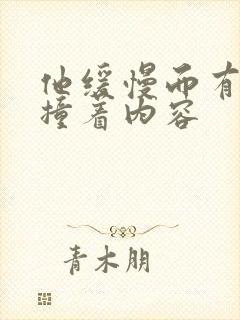 他缓慢而有
撞着内容
青木朋